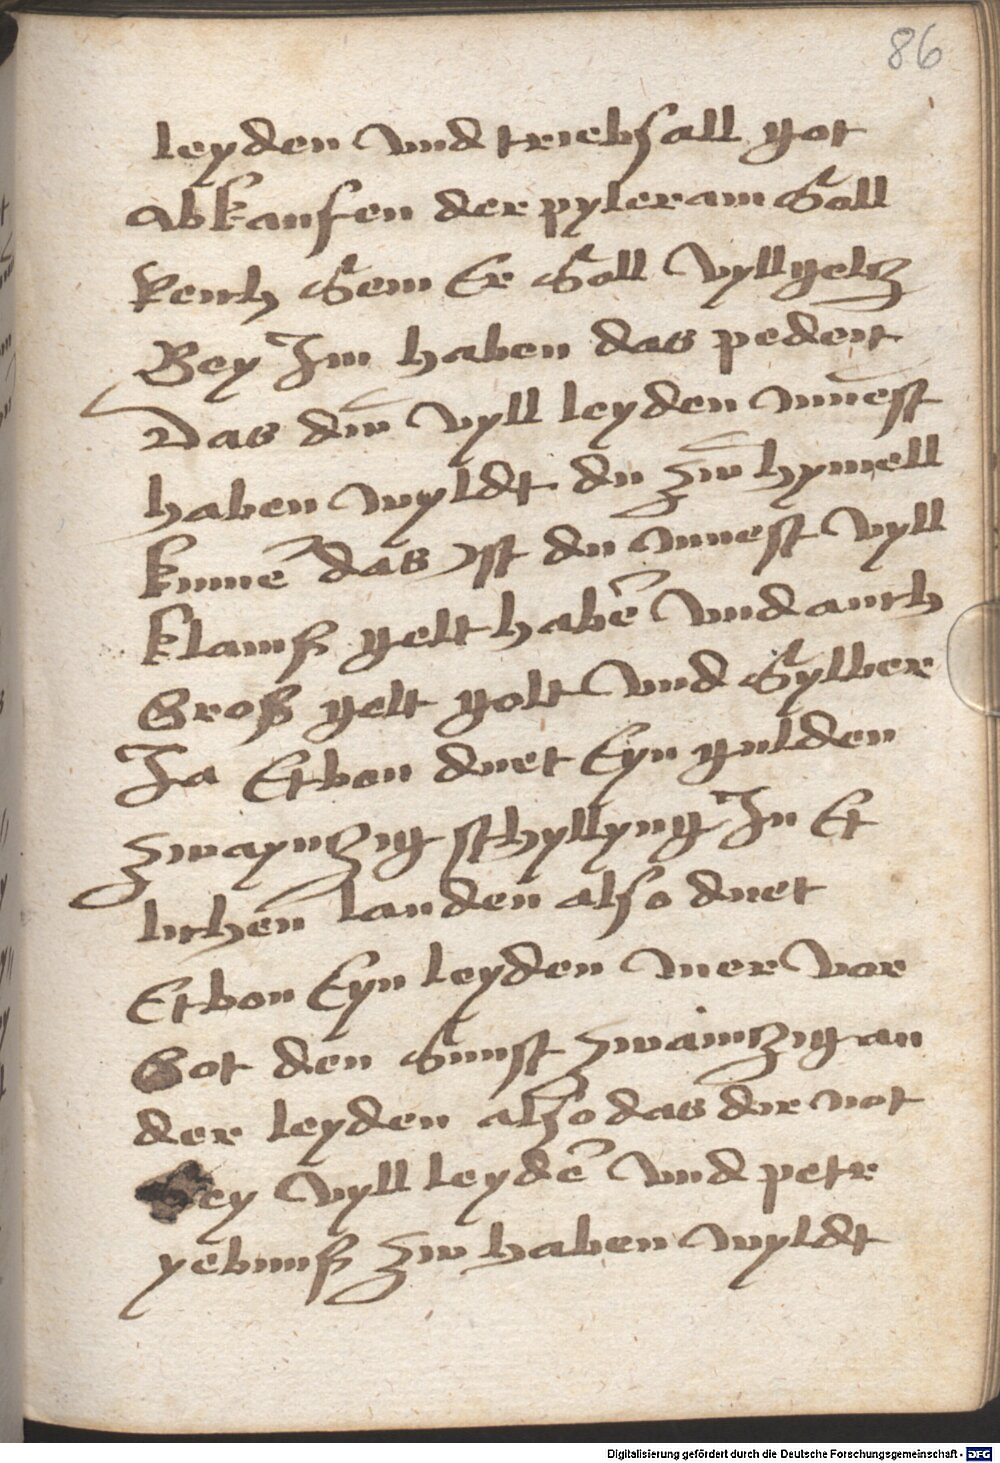 86
leyden vnd triebsall got
abkaufen der pyleram Soll
Reich Sein Er Soll vyll geltz
Bey Im haben das pedeut
Das duͦ vyll leyden muest
haben wyldt du zuͦ hymell
kumē das Ist du muest vyll
klainß gelt habē vnd auch
Groß gelt golt vnd Sylber
Ja Etbon duet Eyn gulden
zwaynzig schyllyng In Et
lichen landen also duet
Etbon Eyn leyden mer vor
Got den Sunst zwainzig an
der leyden also das dir not
Sey vyll leydē vnd petr
yebnuß zw haben wyldt
Digitalisierung gefördert durch die Deutsche Forschungsgemeinschaft - DFG